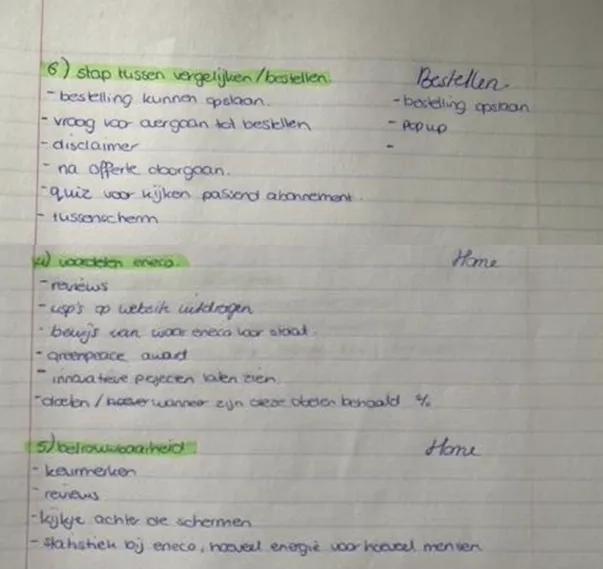 6) stap tussen vergelijken/bestellen. Bestellen
- bestelling kunnen opslaan. - bestelling opslaan
- vraag voor overgaan tot bestellen - popup
- disclaimer -
- na offerte doorgaan.
- quiz voor kijken passend abonnement.
- tussenscherm
4) voordelen eneco. Home
- reviews
- usp's op website uitdragen
- bewijs van waar eneco voor staat.
- greenpeace award
- innovatieve projecten laten zien.
- doelen / wanneer zijn deze doelen behaald %
5) betrouwbaarheid Home
- keurmerken
- reviews
- kijkje achter de schermen
- statistiek bij eneco, hoeveel energie voor hoeveel mensen